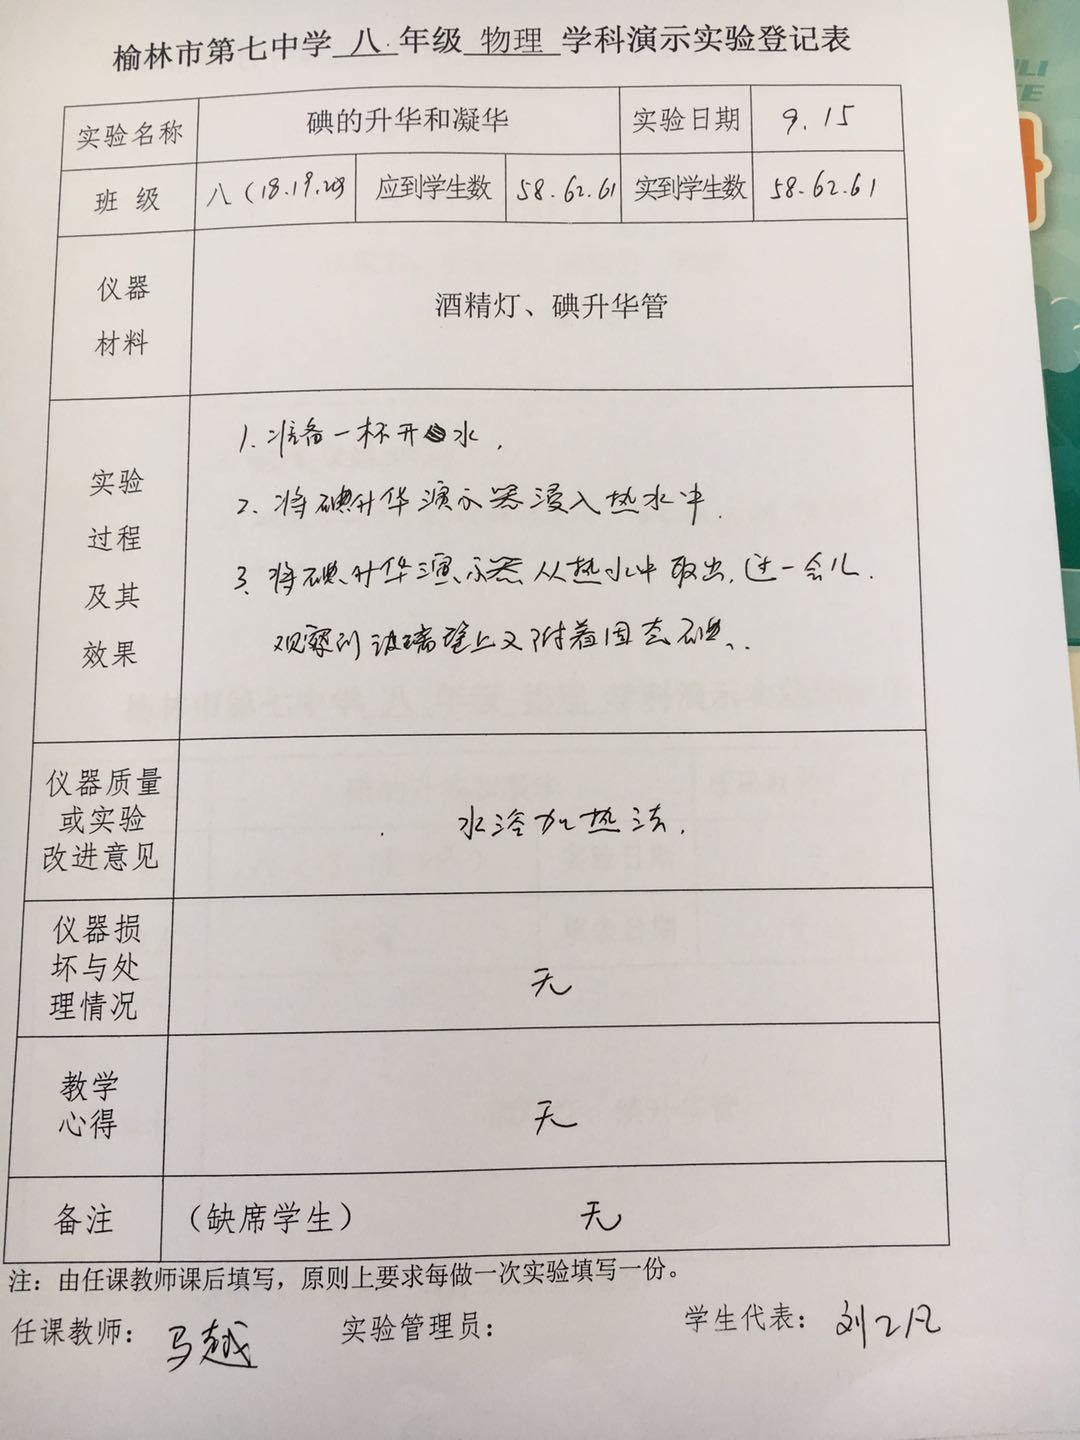 榆林市第七中学 八 年级 物理 学科演示实验登记表
实验名称 碘的升华和凝华 实验日期 9.15
班 级 八(18.19.20) 应到学生数 58.62.61 实到学生数 58.62.61
仪器
材料
酒精灯、碘升华管
实验
过程
及其
效果
1. 准备一杯开水.
2. 将碘升华演示器浸入热水中.
3. 将碘升华演示器从热水中取出,过一会儿.
观察到玻璃璧上又附着固态碘.
仪器质量
或实验
改进意见
水浴加热法.
仪器损
坏与处
理情况
无
教学
心得
无
备注 (缺席学生) 无
注:由任课教师课后填写,原则上要求每做一次实验填写一份。
任课教师:马越 实验管理员: 学生代表:刘 凡